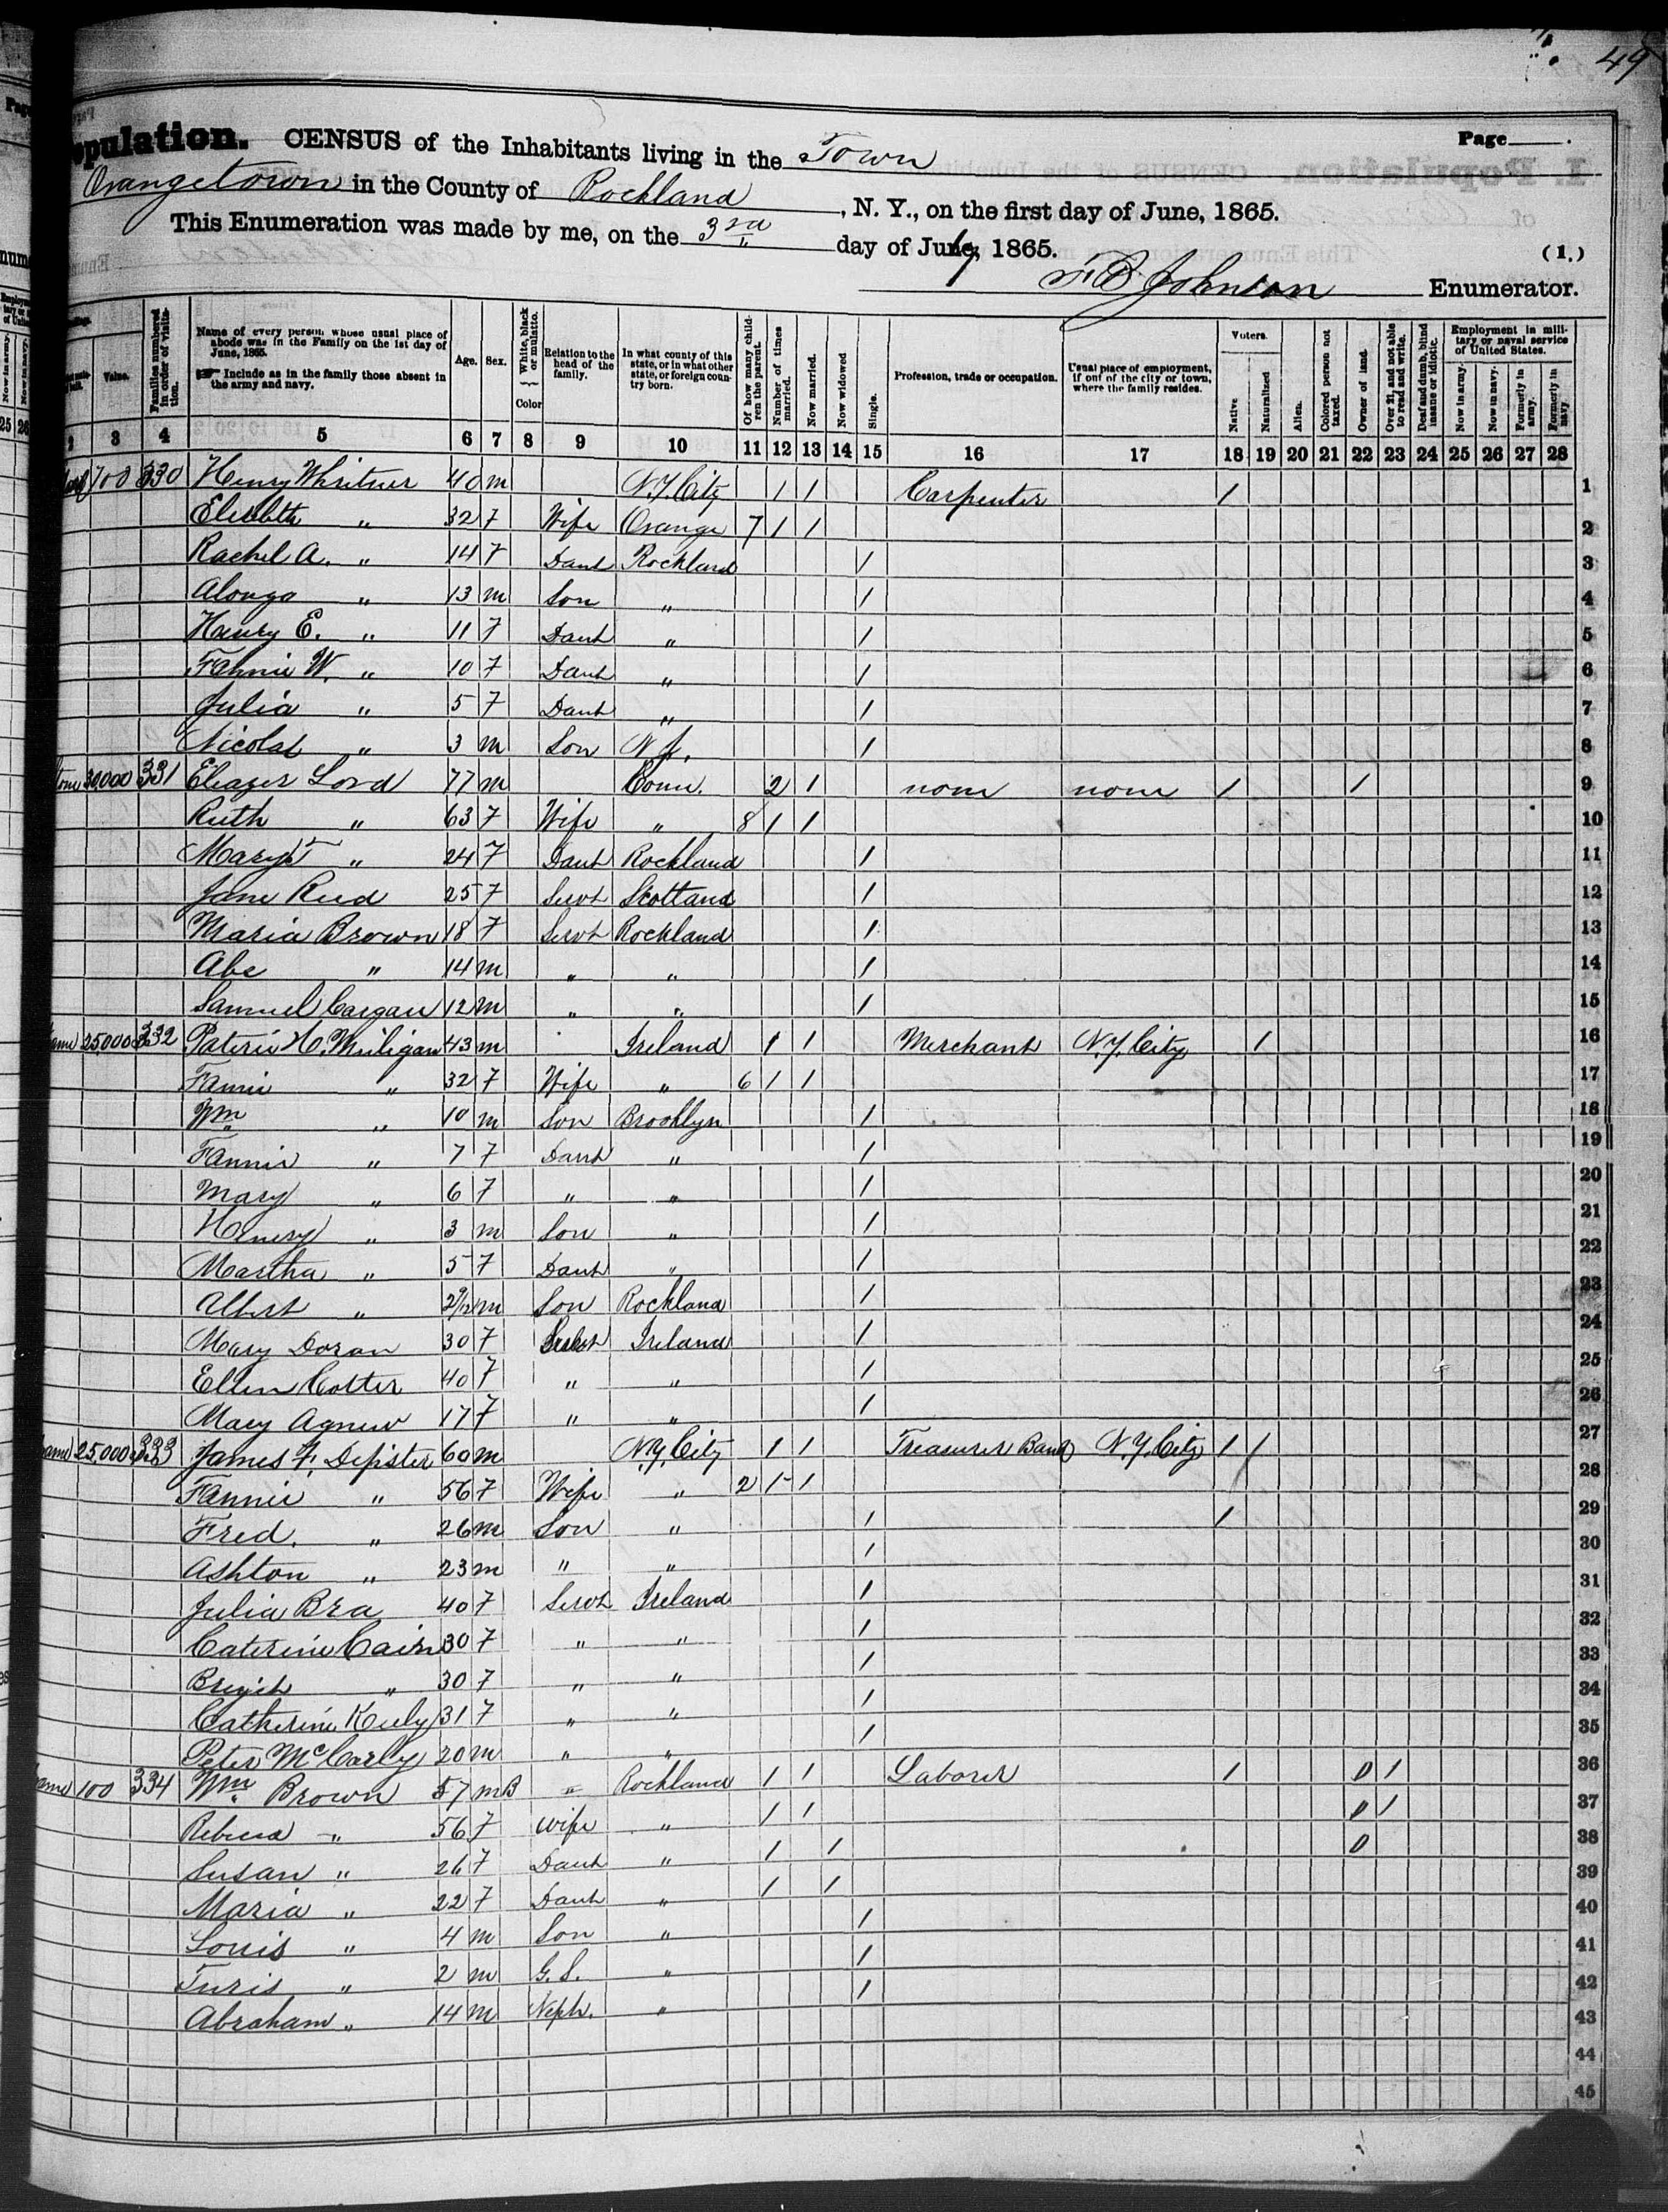 49
Population. CENSUS of the Inhabitants living in the Town Page
Orangetown in the County of Rockland, N. Y., on the first day of June, 1865.
This Enumeration was made by me, on the 3rd day of July, 1865. (1.)
Johnson Enumerator.
Value. Families numbered in order of visitation. Name of every person whose usual place of abode was in the Family on the 1st day of June, 1865. Include as in the family those absent in the army and navy. Age. Sex. White, black or mulatto. Color Relation to the head of the family. In what county of this state, or in what other state, or foreign country born. Of how many children the parent. Number of times married. Now married. Now widowed Single. Profession, trade or occupation. Usual place of employment, if out of the city or town, where the family resides. Voters. Native Naturalized Alien. Colored person not taxed. Owner of land. Over 21, and not able to read and write. Deaf and dumb, blind insane or idiotic. Employment in military or naval service of United States. Now in army. Now in navy. Formerly in army. Formerly in navy.
3 4 5 6 7 8 9 10 11 12 13 14 15 16 17 18 19 20 21 22 23 24 25 26 27 28
700 330 Henry Whritner 40 m N.Y. City 1 1 Carpenter 1 1
Elisabeth " 32 F Wife Orange 7 1 1 2
Rachel A. " 14 F Daut Rockland 1 3
Alonzo " 13 m Son " 1 4
Henry E. " 11 F Daut " 1 5
Fannie W. " 10 F Daut " 1 6
Julia " 5 F Daut " 1 7
Nicolas " 3 m Son N.J. 1 8
30,000 331 Eleazer Lord 77 m Conn. 2 1 none none 1 1 9
Ruth " 63 F Wife " 8 1 1 10
Mary T " 24 F Daut Rockland 1 11
Jane Reed 25 F Servt Scotland 1 12
Maria Brown 18 F Servt Rockland 1 13
Abe " 14 m " " 1 14
Samuel 12 m " " 1 15
25,000 332 H. Muligan 43 m Ireland 1 1 Merchant N.Y. City 1 16
Fannie " 32 F Wife " 6 1 1 17
Wm " 10 m Son Brooklyn 1 18
Fannie " 7 F Daut " 1 19
Mary " 6 F " " 1 20
Henery " 3 m Son " 1 21
Martha " 5 F Daut " 1 22
Albert " 9/12 m Son Rockland 1 23
Mary Doran 30 F Servt Ireland 1 24
Ellen Cotter 40 F " " 1 25
Mary Agnew 17 F " " 1 26
25,000 333 James F. Depister 60 m N.Y. City 1 1 Treasurer Bank N.Y. City 1 1 27
Fannie " 56 F Wife " 2 1 1 28
Fred. " 26 m Son " 1 1 29
Ashton " 23 m " " 1 30
Julia Bra 40 F Servt Ireland 1 31
Caterine Cain 30 F " " 1 32
" 30 F " " 1 33
Catherine Keely 31 F " " 1 34
Peter McCarly 20 m " " 1 35
100 334 Wm Brown 57 m B " Rockland 1 1 Laborer 1 0 1 36
" 56 F Wife " 1 1 0 1 37
Susan " 26 F Daut " 1 1 0 38
Maria " 22 F Daut " 1 1 39
Louis " 4 m Son " 1 40
" 2 m G. S. " 1 41
Abraham " 14 m Neph. " 1 42
43
44
45